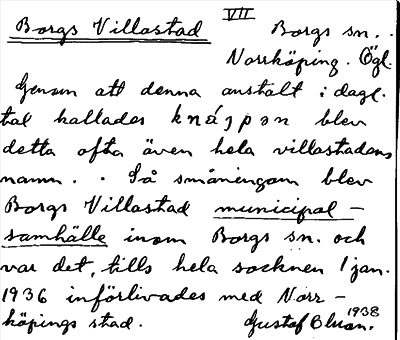 VII
Borgs Villastad Borgs sn.
Norrköping. Ögl.
Genom att denna anstalt i dagl.
tal kallades knájpən blev
detta ofta även hela villastadens
namn. . Så småningom blev
Borgs Villastad municipal-
samhälle inom Borgs sn. och
var det, tills hela socknen 1 jan.
1936 införlivades med Norr-
köpings stad. Gustaf 1938